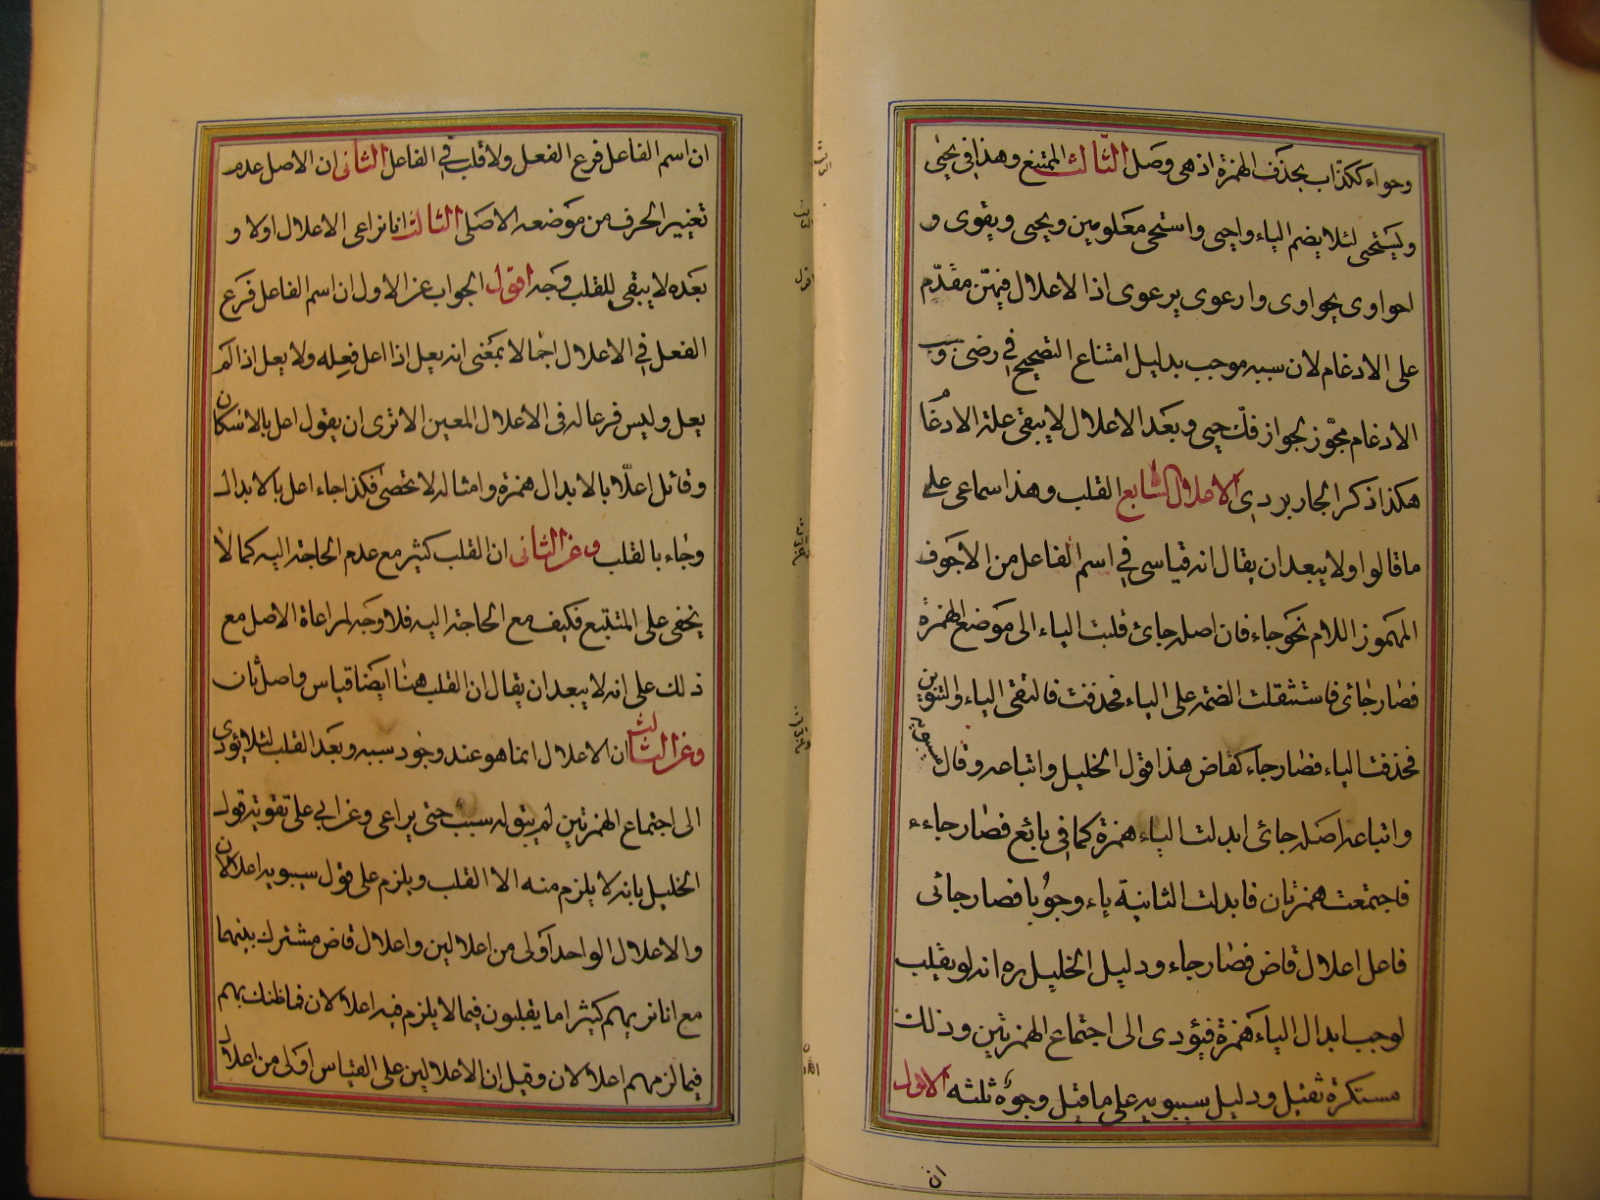 وحواء ككذاب بحذف الهمزة اذ هى وصل الثالث الممتنع وهذا فى يحيى
ويستحيى لئلا يضم الياء واحيى واستحيى معلومين ويحيى ويقوى و
احواوى يحواوى وارعوى يرعوى اذ الاعلال فيهن مقدم
على الادغام لان سببه موجب بدليل امتناع التصحيح فى رضى وسبب
الادغام مجوز لجواز فك حيى وبعد الاعلال لا يبقى علة الادغا
هكذا ذكر الجاربردى الاعلال السابع القلب وهذا سماعى على
ما قالوا ولا يبعد ان يقال انه قياسى فى اسم الفاعل من الاجوف
المهموز اللام نحو جاء فان اصله جائ قلبت الياء الى موضع الهمزة
فصار جائى فاستثقلت الضمة على الياء فحذفت فالتقى الياء والتنوين
فحذفت الياء فصار جاء كقاض هذا قول الخليل واتباعه وقال سيبويه
واتباعه اصله جائ ابدلت الياء همزة كما فى بائع فصار جاءء
فاجتمعت همزتان فابدلت الثانية ياء وجوبا فصار جائى
فاعل اعلال قاض فصار جاء ودليل الخليل ره انه لو يقلب
لوجب ابدال الياء همزة فيؤدى الى اجتماع الهمزتين وذلك
مستكره ثقيل ودليل سيبويه على ما قيل وجوه ثلثه الاول
ان
ان اسم الفاعل فرع الفعل ولا قلب فى الفاعل الثانى ان الاصل عدم
تغيير الحرف من موضعه الاصلى الثالث انا نراعى الاعلال اولا و
بعده لا يبقى للقلب وجه اقول الجواب عن الاول ان اسم الفاعل فرع
الفعل فى الاعلال اجمالا بمعنى انه يعل اذا اعل فعله ولا يعل اذا لم
يعل وليس فرعا له فى الاعلال المعين الا ترى ان يقول اعل بالاسكان
وقائل اعلا بالابدال همزة وامثاله لا تحصى فكذا جاء اعل بالابدال
وجاء بالقلب وعن الثانى ان القلب كثير مع عدم الحاجة اليه كما لا
يخفى على المتتبع فكيف مع الحاجة اليه فلا وجه لمراعاة الاصل مع
ذلك على انه لا يبعد ان يقال ان القلب هنا ايضا قياس واصل ثان
وعن الثالث ان الاعلال انما هو عند وجود سببه وبعد القلب لئلا يؤدى
الى اجتماع الهمزتين لم يبق له سبب حتى يراعى وعن ابى على تقوية قول
الخليل بانه لا يلزم منه الا القلب ويلزم على قول سيبويه اعلالان
والاعلال الواحد اولى من اعلالين واعلال قاض مشترك بينهما
مع انا نريهم كثيرا ما يقلبون فيما لا يلزم فيه اعلالان فما ظنك بهم
فيما لزمهم اعلالان وقيل ان الاعلالين على القياس اولى من اعلال